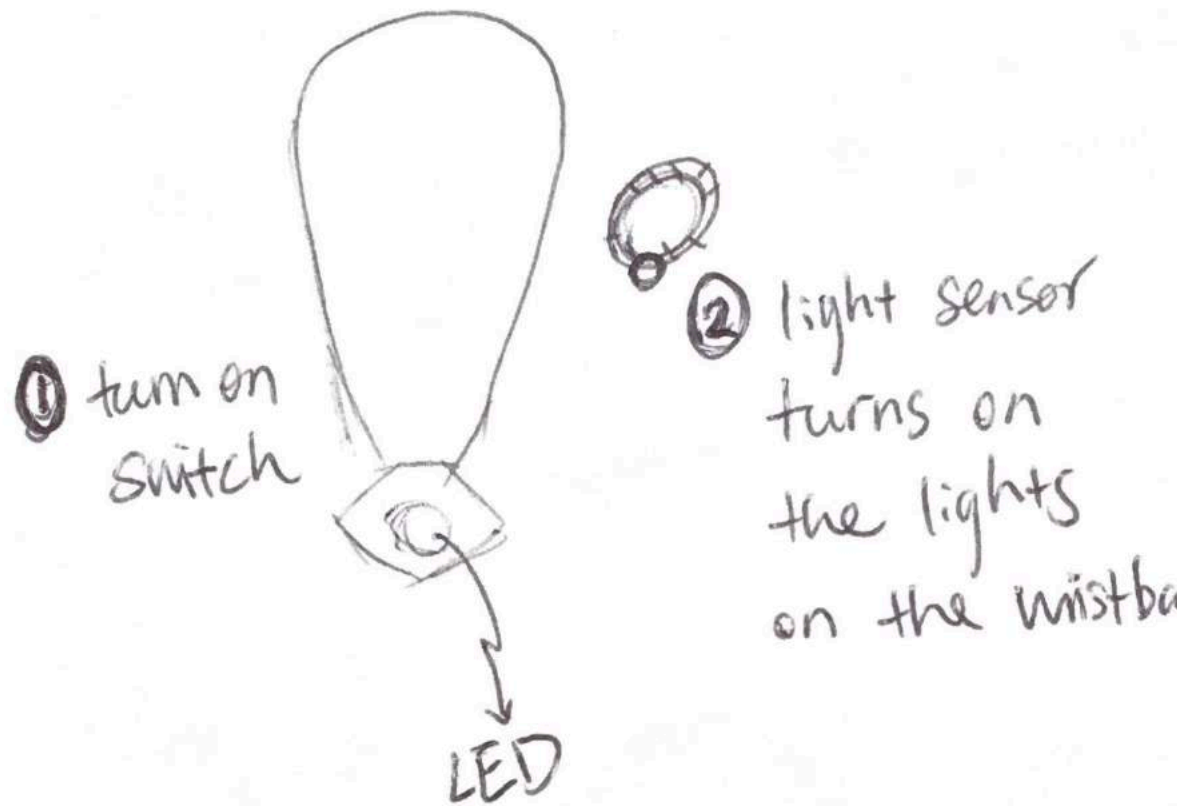 ① turn on
switch
② light sensor
turns on
the lights
on the wristba
LED